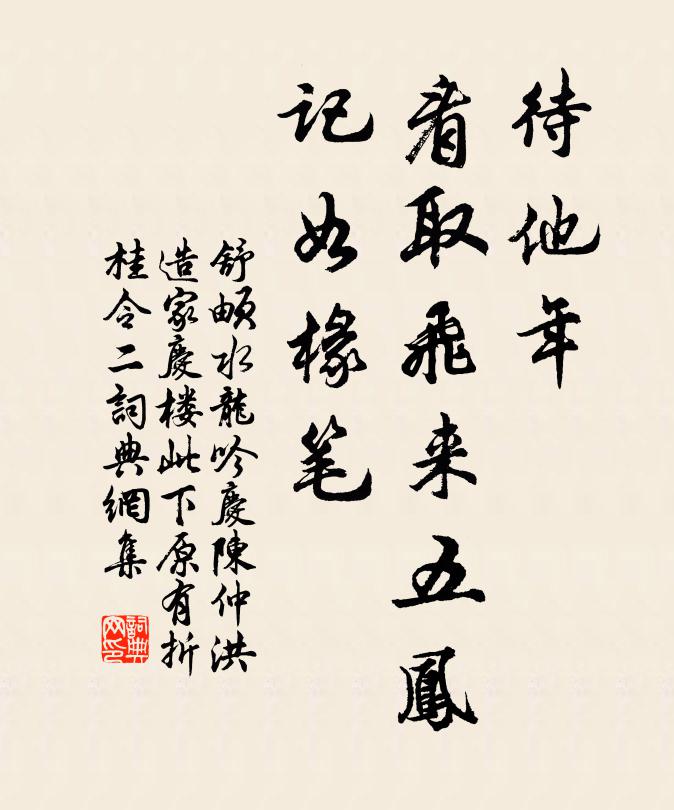 待他年
看取飛来五鳳
記如椽笔
舒頔水龍吟慶陳仲洪
造家慶楼此下原有折
桂令二詞典網集
詞典
网印